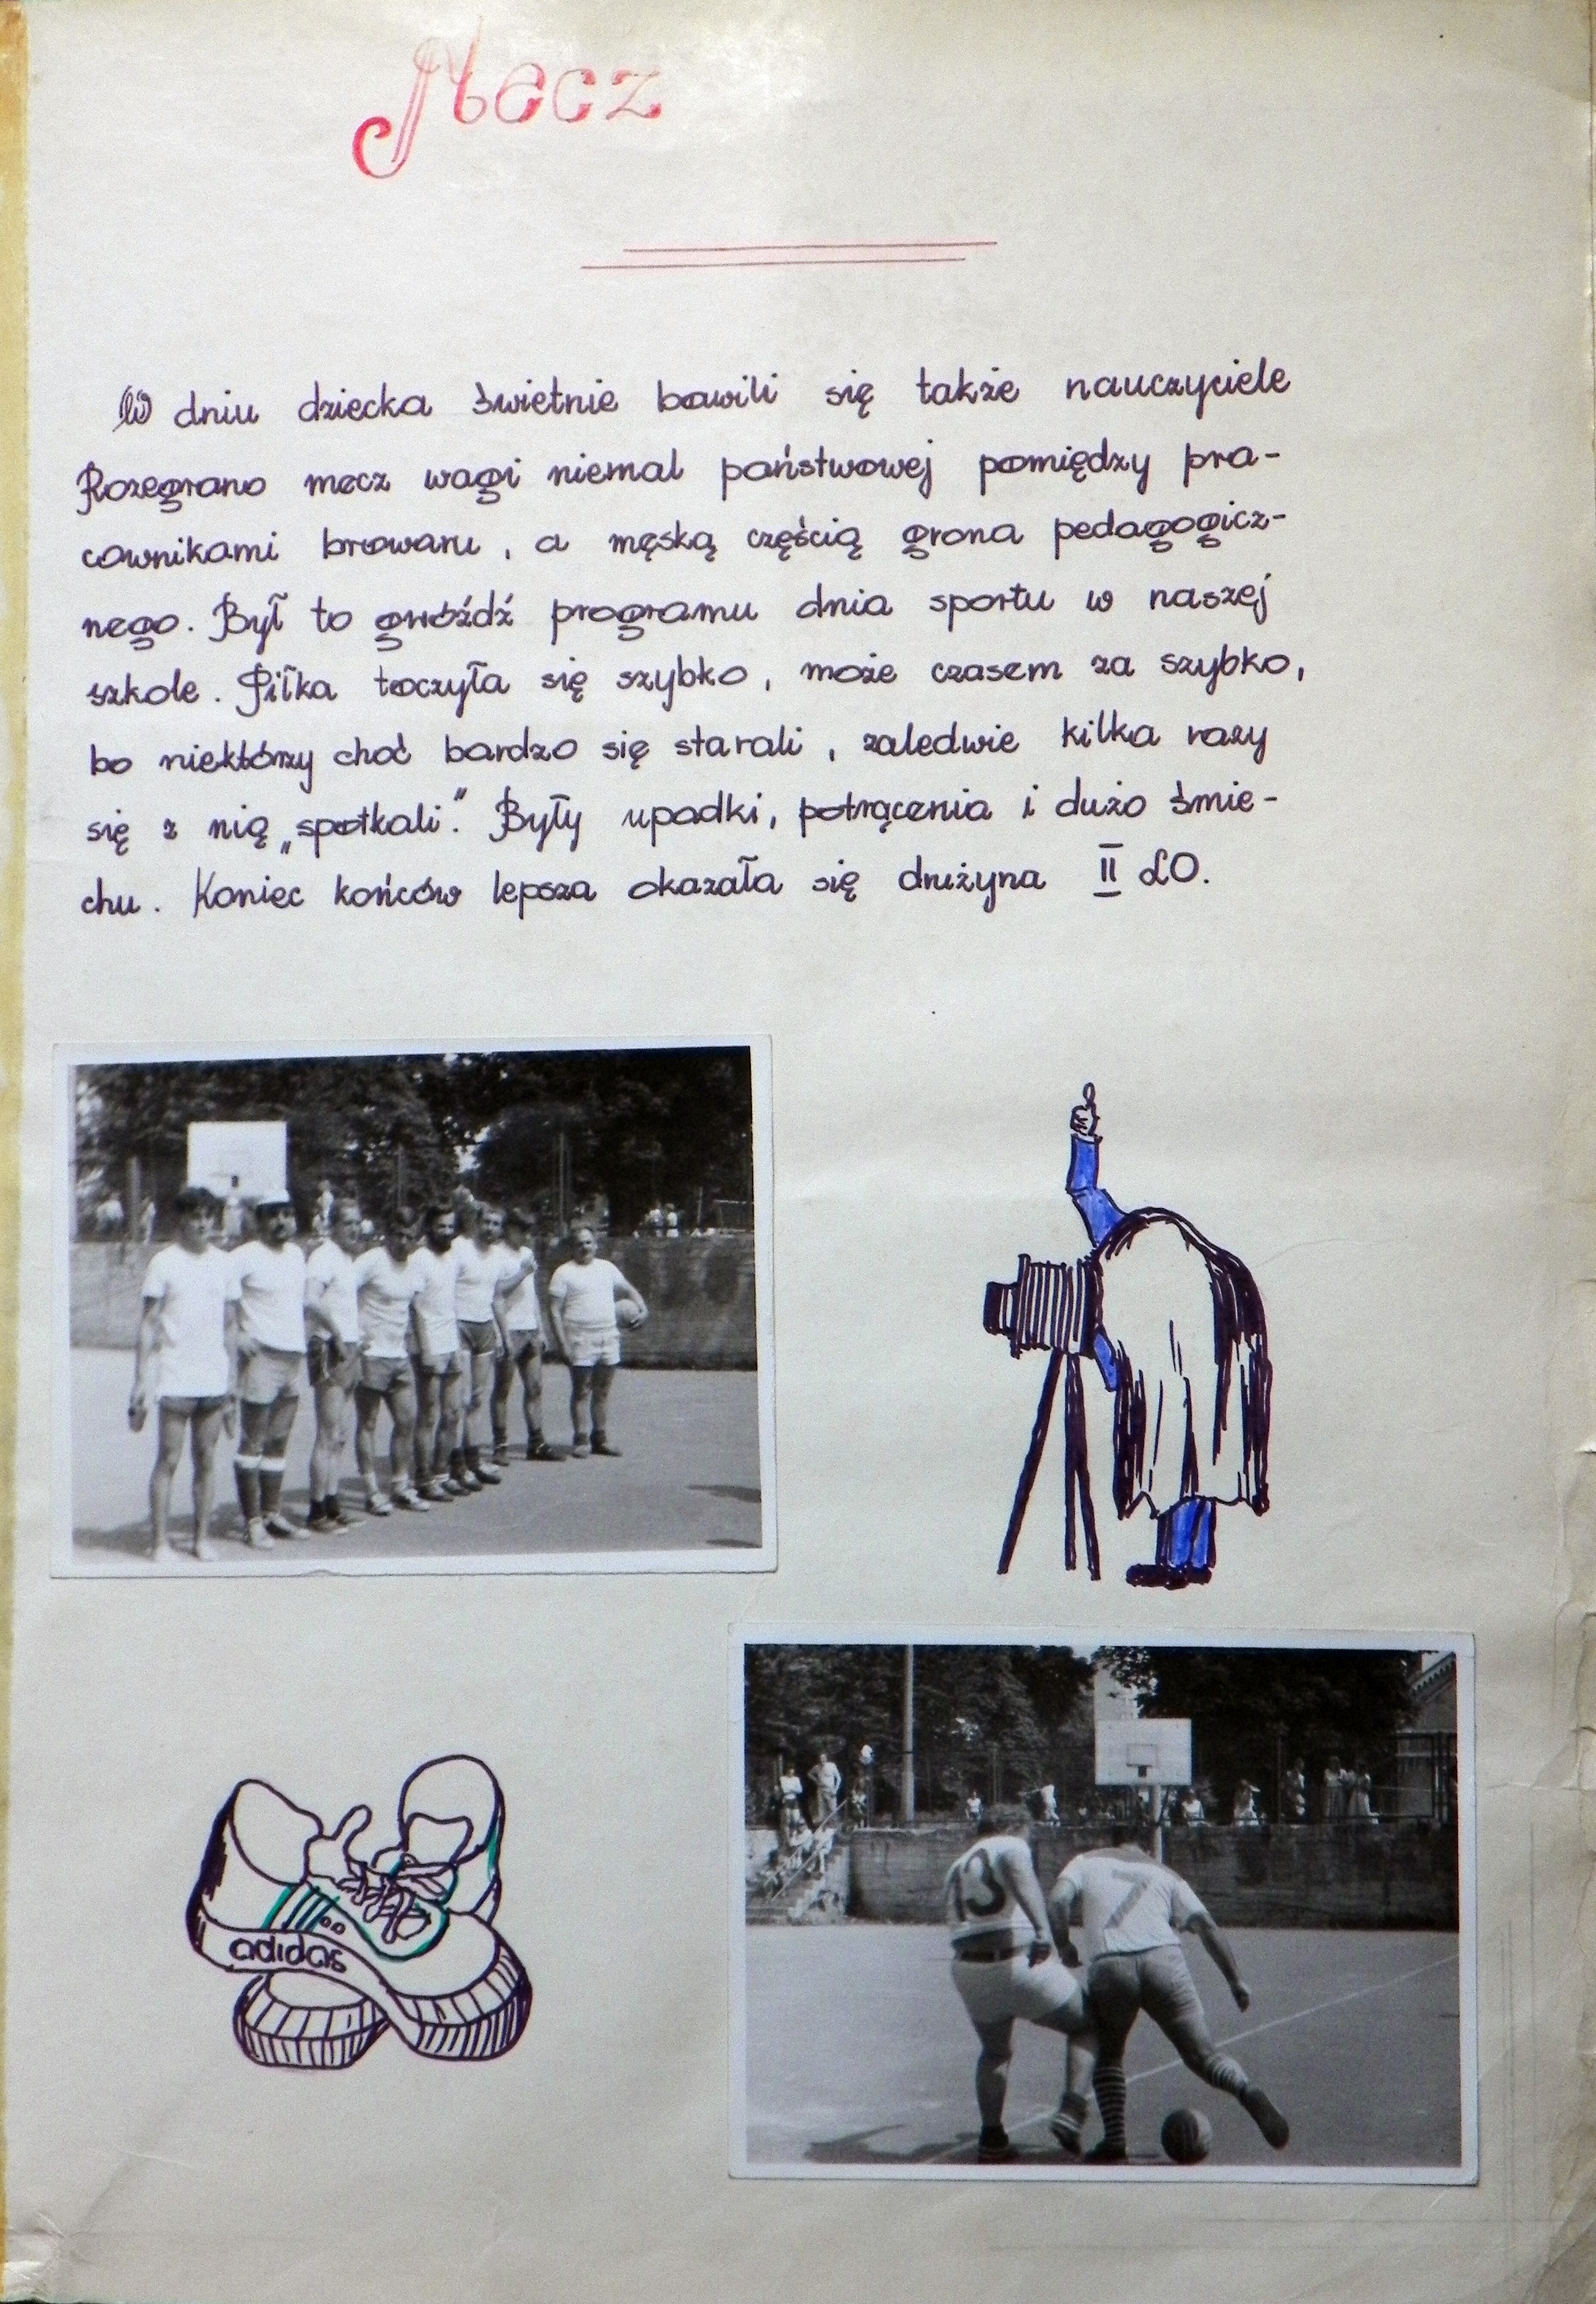 Mecz
W dniu dziecka świetnie bawili się także nauczyciele
Rozegrano mecz wagi niemal państwowej pomiędzy pra-
cownikami browaru, a męską częścią grona pedagogicz-
nego. Był to gwóźdź programu dnia sportu w naszej
szkole. Piłka toczyła się szybko, może czasem za szybko,
bo niektórzy choć bardzo się starali, zaledwie kilka razy
się z nią „spotkali”. Były upadki, potrącenia i dużo śmie-
chu. Koniec końców lepsza okazała się drużyna II LO.
13
7
adidas